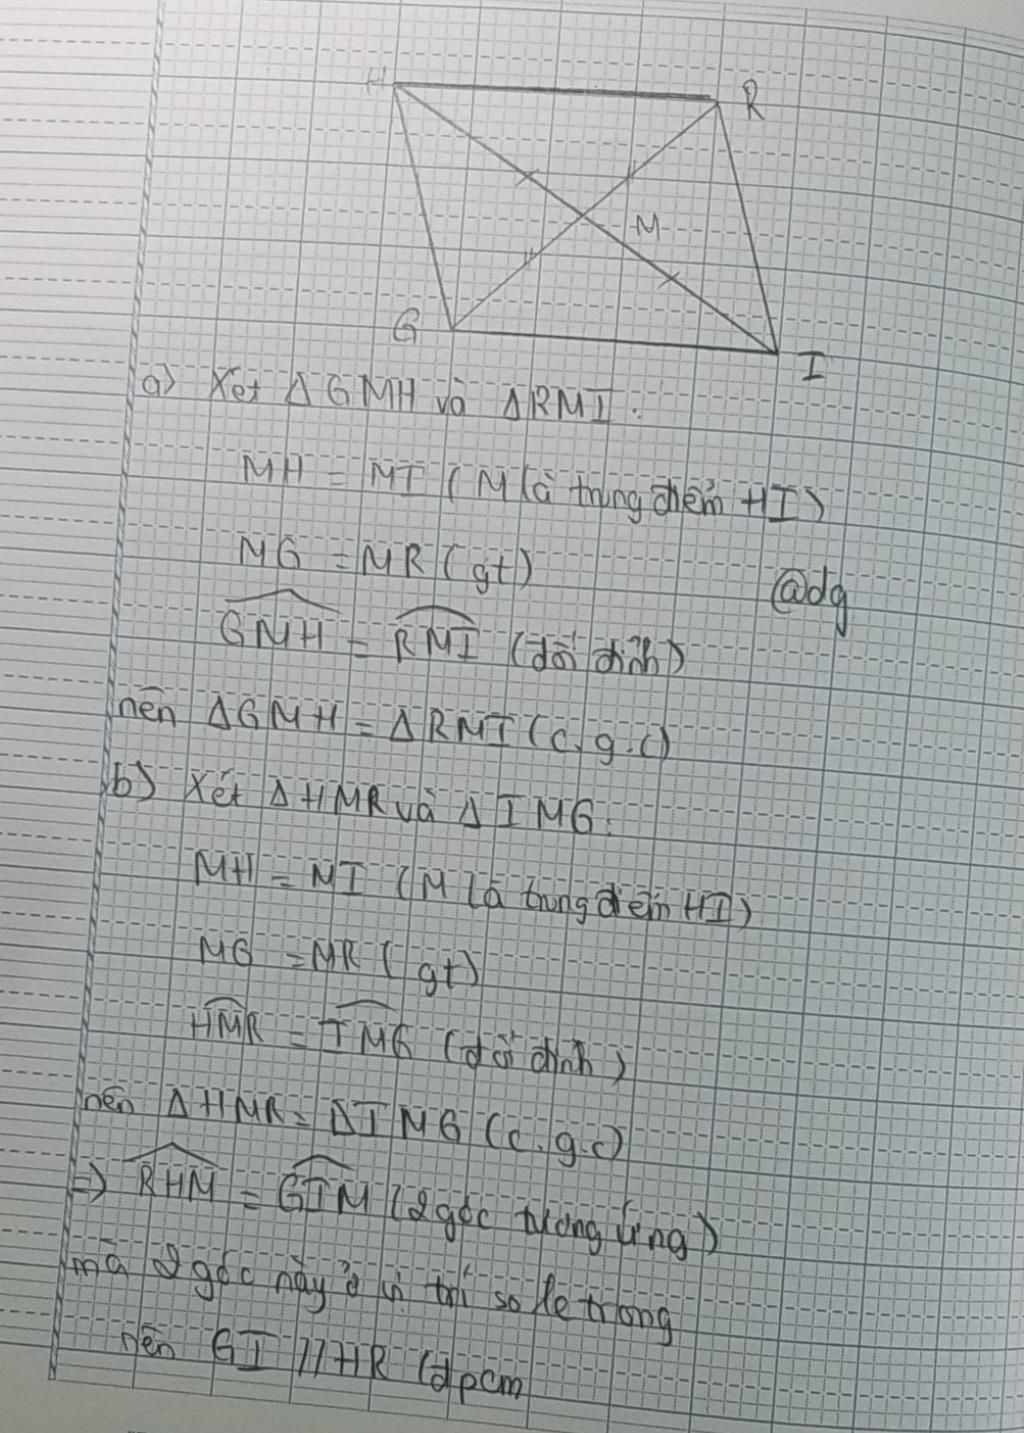 H
R
M
G
I
a) Xét ΔGMH và ΔRMI:
MH = MI (M là trung điểm HI)
MG = MR (gt)
@dg
GMH = RMI (đối đỉnh)
nên ΔGMH = ΔRMI (c.g.c)
b) Xét ΔHMR và ΔIMG:
MH = MI (M là trung điểm HI)
MG = MR (gt)
HMR = IMG (đối đỉnh)
nên ΔHMR = ΔIMG (c.g.c)
=> RHM = GIM (2 góc tương ứng)
mà 2 góc này ở vị trí so le trong
nên GI // HR (đpcm